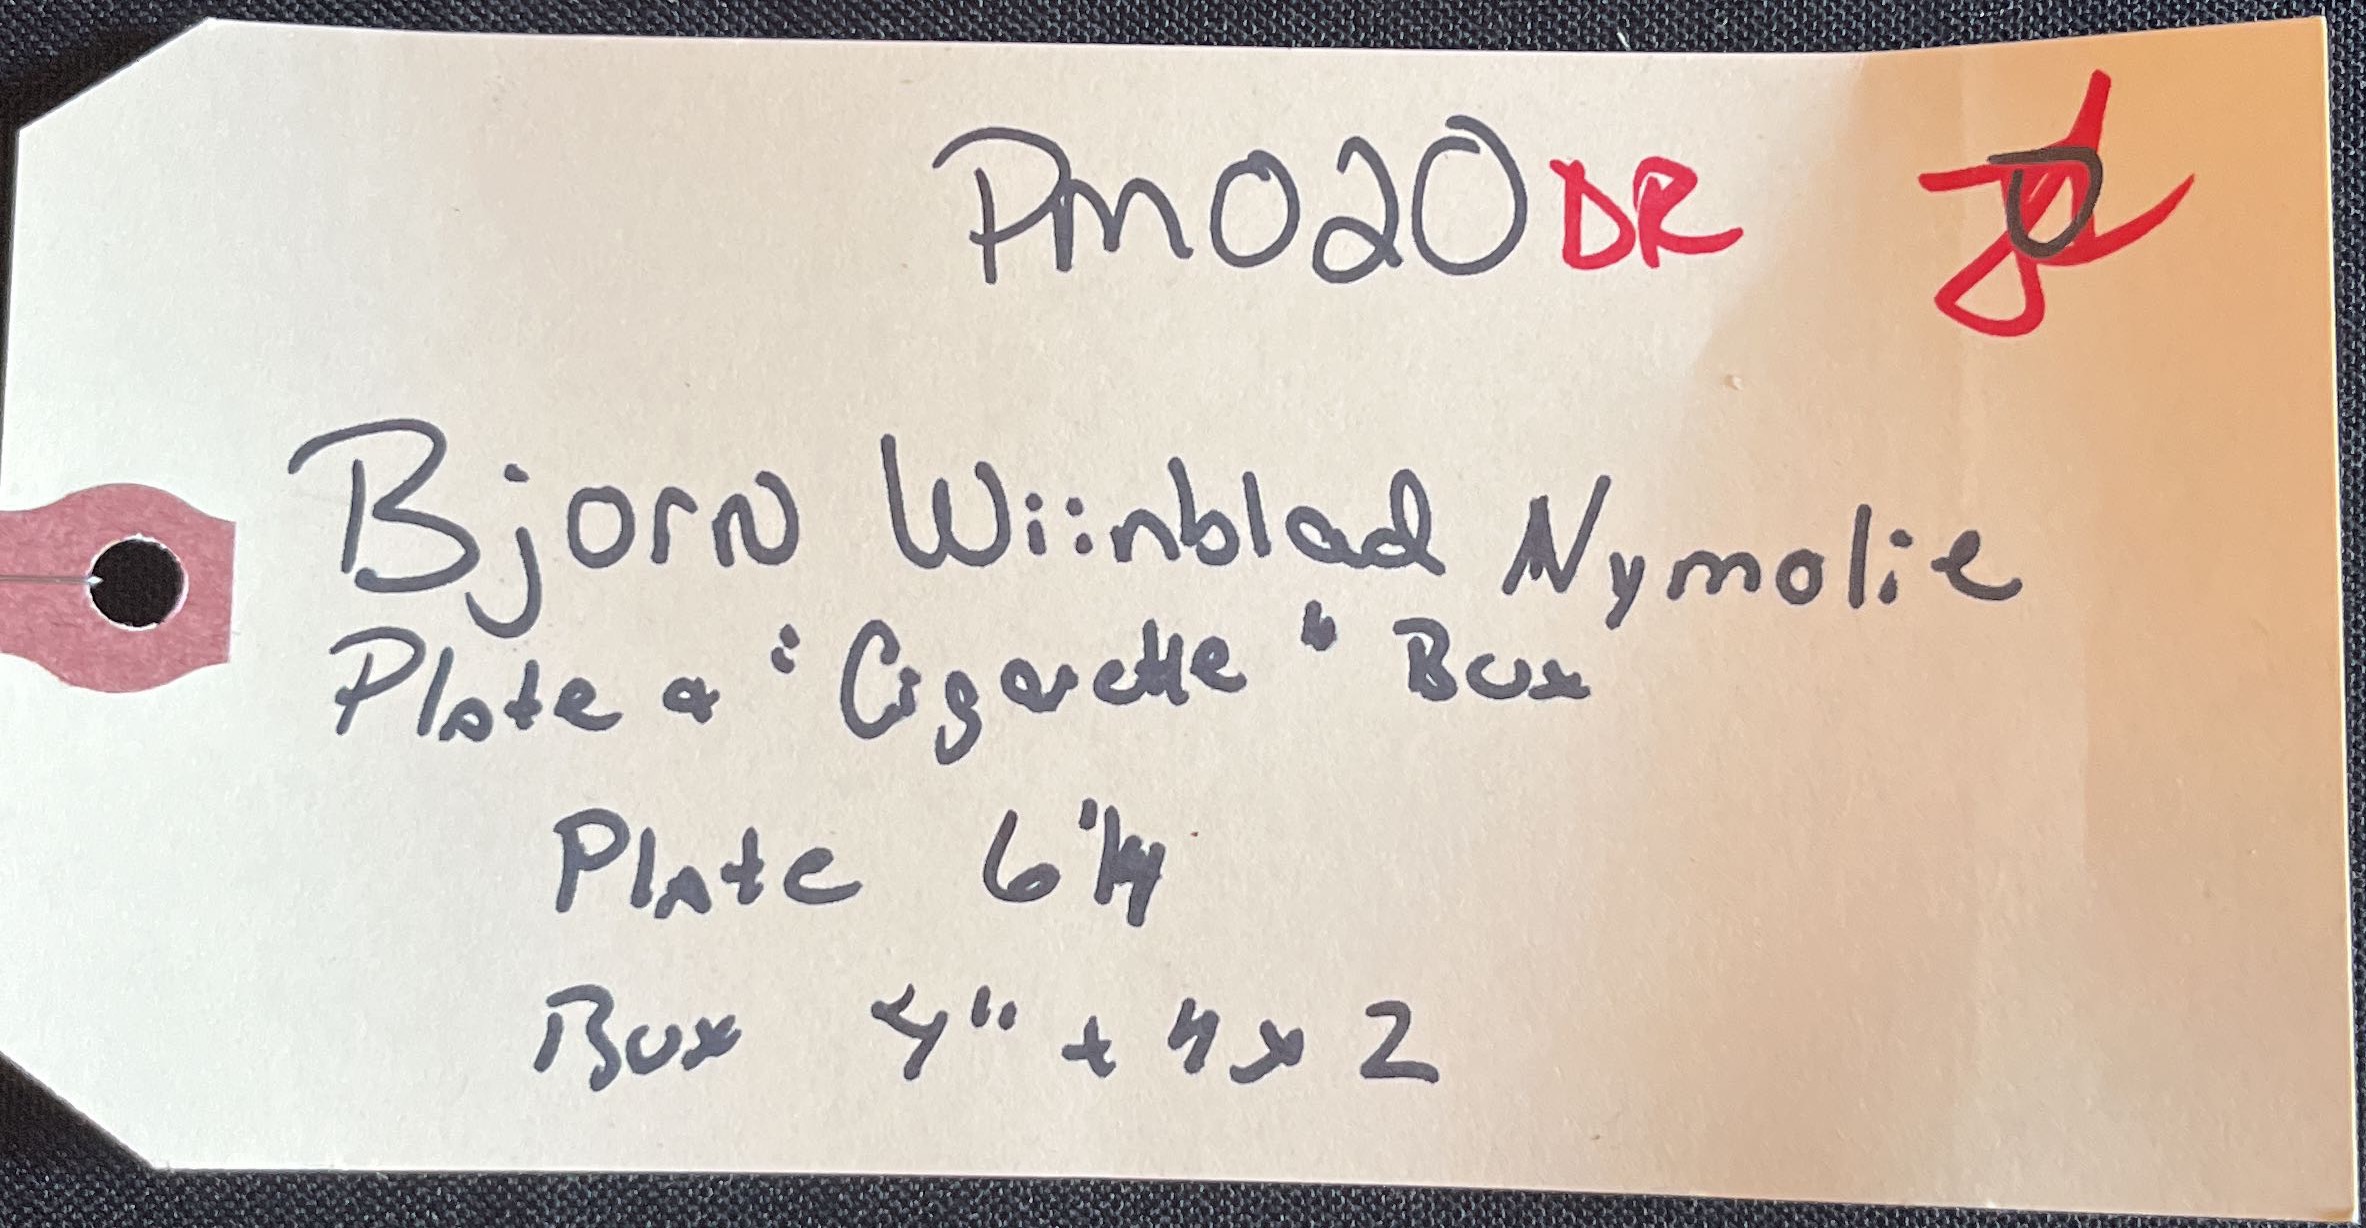 PM020 DR
Bjorn Wiinblad Nymolie
Plate & "Cigarette" Box
Plate 6"
Box 4" x 4 x 2